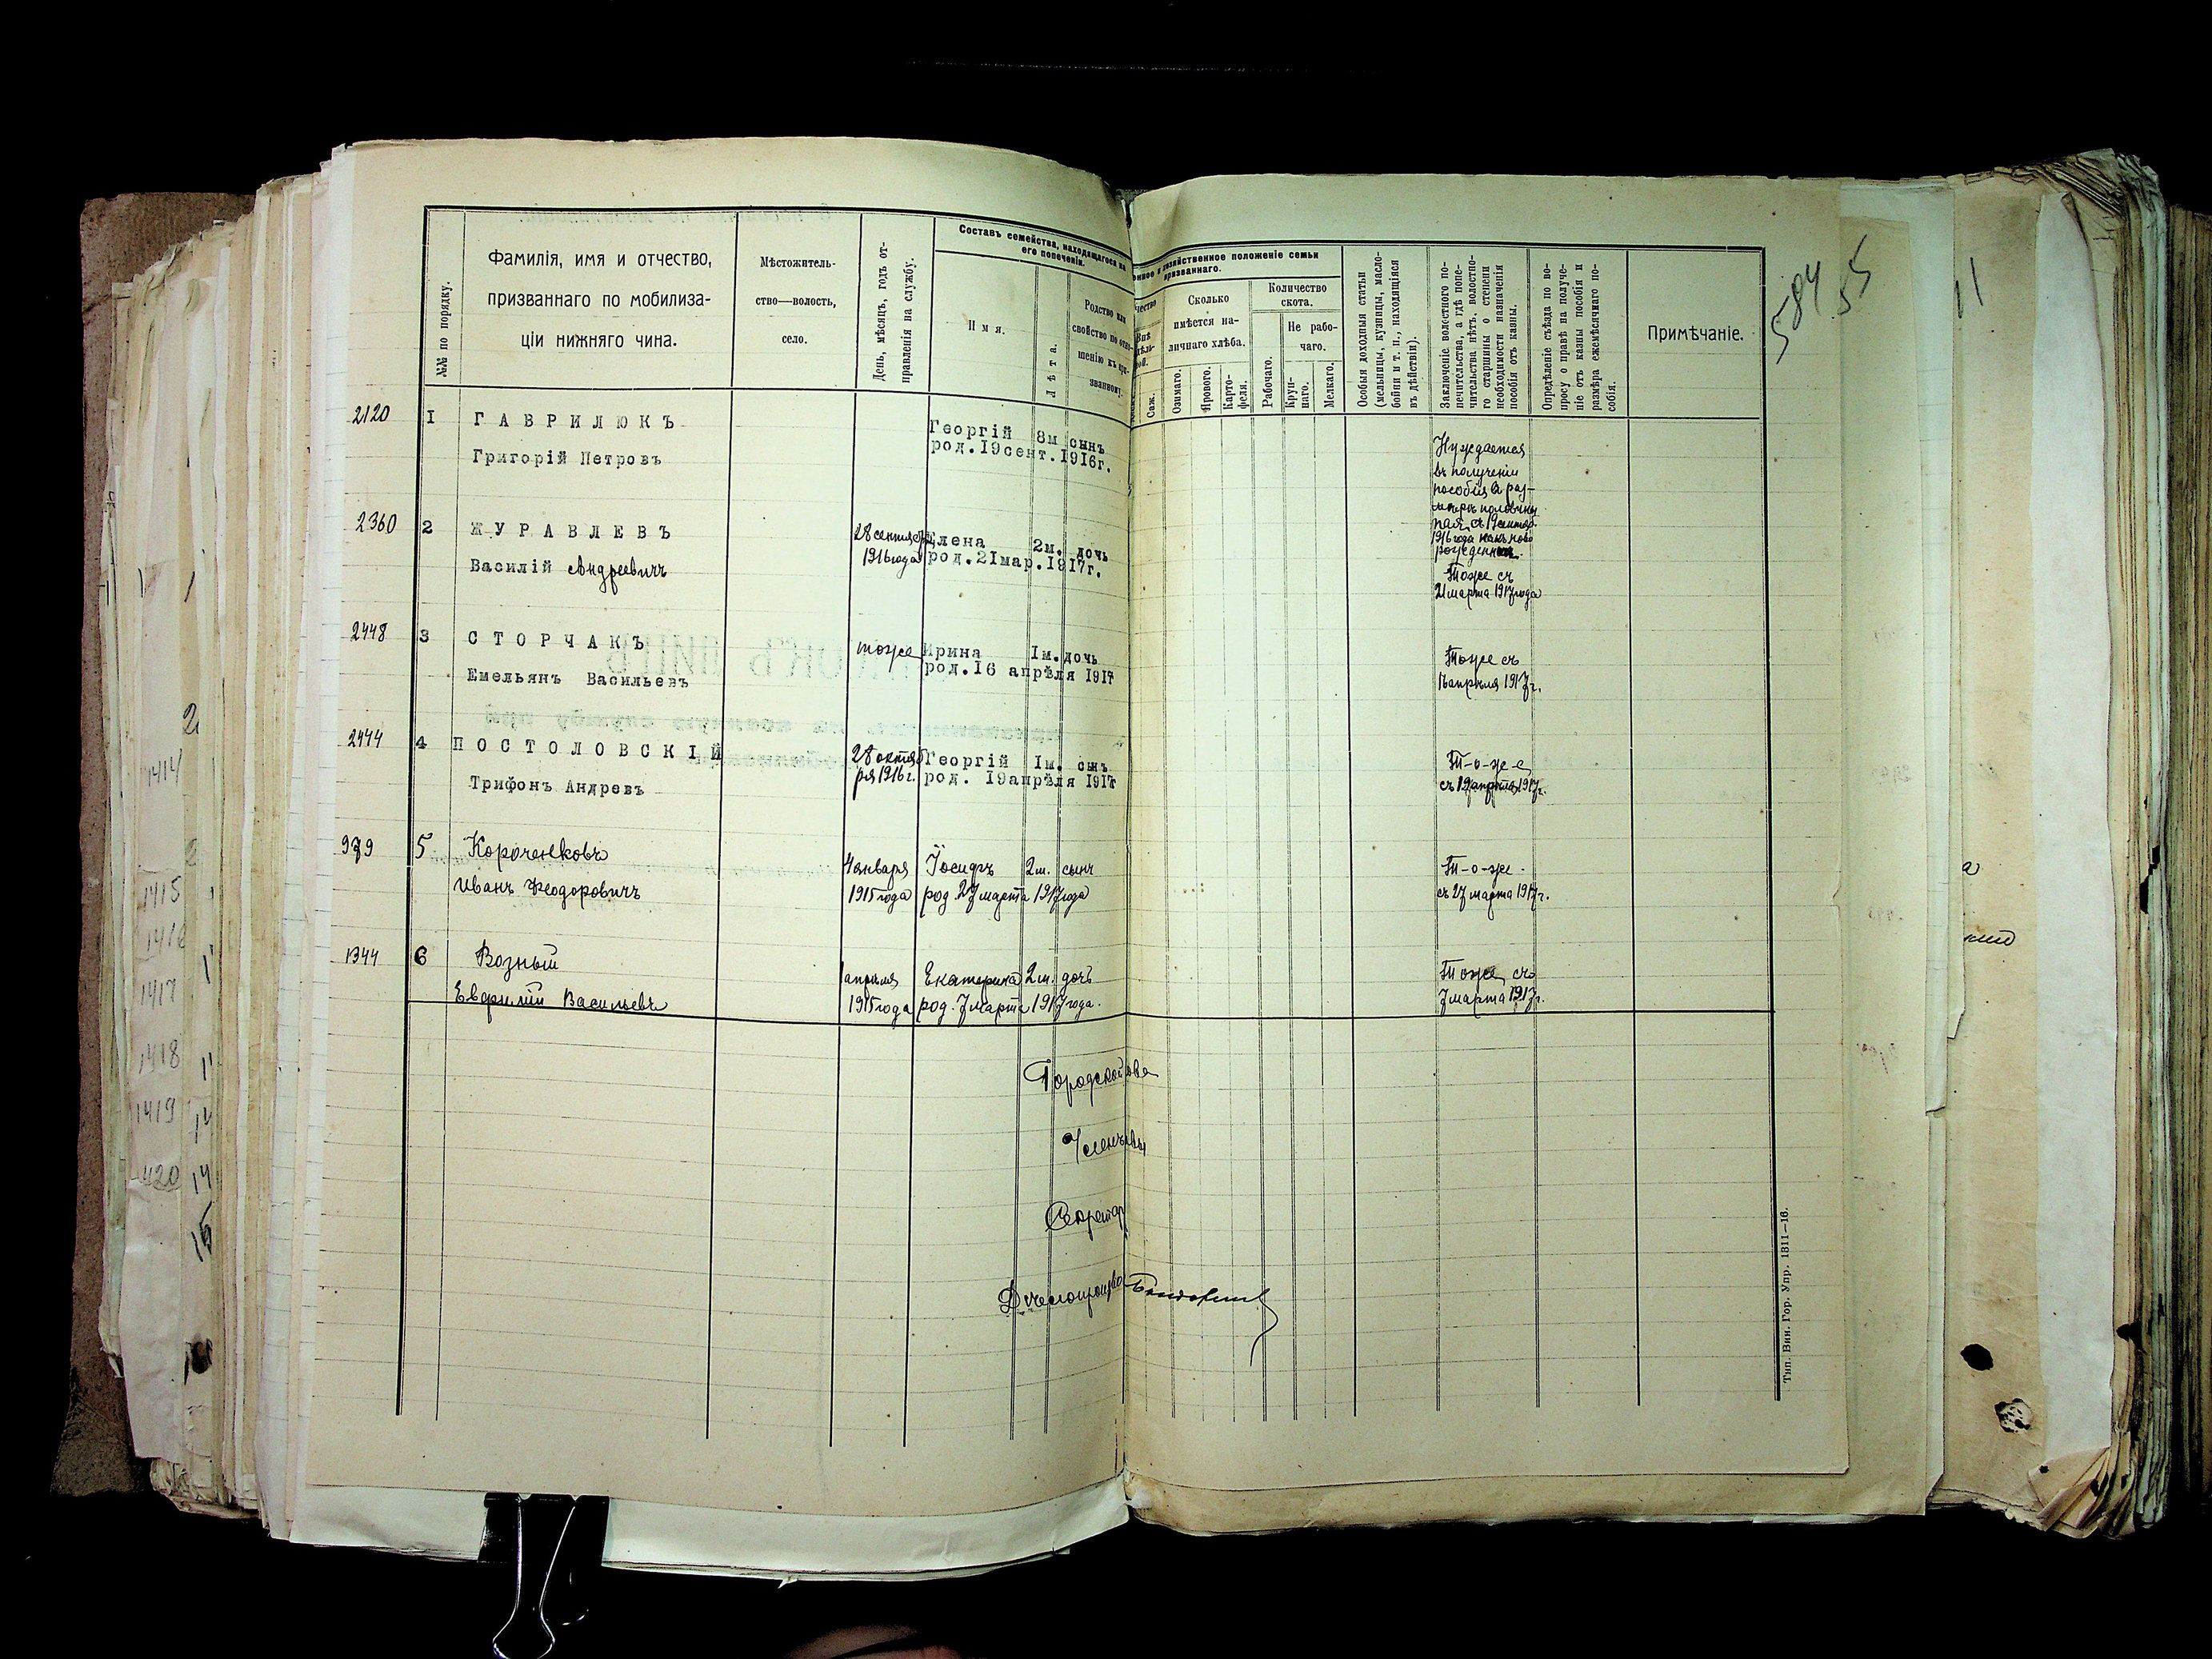 №№ по порядку.
Фамилія, имя и отчество,
призваннаго по мобилиза-
ціи нижняго чина.
Мѣстожитель-
ство—волость,
село.
День, мѣсяцъ, годъ от-
правленія на службу.
Составъ семейства, находящагося на
его попеченіи.
Имя.
Лѣта.
Родство или
свойство по отно-
шенію къ при-
званному.
хозяйственное положеніе семьи
призваннаго.
Внѣ
Саж.
Сколько
имѣется на-
личнаго хлѣба.
Озимаго.
Ярового.
Карто-
феля.
Количество
скота.
Рабочаго.
Не рабо-
чаго.
Круп-
наго.
Мелкаго.
Особыя доходныя статьи
(мельницы, кузницы, масло-
бойни и т. п., находящіяся
въ дѣйствіи).
Заключеніе волостного по-
печительства, а гдѣ попе-
чительства нѣтъ, волостно-
го старшины о степени
необходимости назначенія
пособія отъ казны.
Опредѣленіе съѣзда по во-
просу о правѣ на получе-
ніе отъ казны пособія и
размѣра ежемѣсячнаго по-
собія.
Примѣчаніе.
584
55
11
2120 1 ГАВРИЛЮКЪ
Григорій Петровъ
Георгій 8м сынъ
род.19сент.1916г.
Нуждается
въ полученіи
пособія въ раз-
мѣрѣ половины
пая, съ 19 сентяб.
1916 года какъ ново
рожден
2360 2 ЖУРАВЛЕВЪ
Василій Андреевичъ
28 сентября
1916 года
Елена 2м. дочь
род.21мар.1917г.
Тоже съ
21 марта 1917 года
2448 3 СТОРЧАКЪ
Емельянъ Васильевъ
тоже
Ирина 1м. дочь
род.16 апрѣля 1917
Тоже съ
16 апрѣля 1917 г.
2444 4 ПОСТОЛОВСКІЙ
Трифонъ Андревъ
28 октяб
ря 1916 г.
Георгій 1м. сынъ
род. 19апрѣля 1917
Т-о-ж-е
съ 19 апрѣля 1917 г.
5 Короченковъ
Иванъ Феодоровичъ
4 января
1915 года
Іосифъ 2м. сынъ
род 27 марта 1917 года
Т-о-же.
съ 27 марта 1917 г.
1344 6 Возный
Евфимій Васильевъ
1 апрѣля
1915 года
Екатерина 2м. дочь
род. 7 марта 1917 года.
Тоже съ
7 марта 1917 г.
Городской
Секретарь
Тип. Вин. Гор. Упр. 1811—16.
2
1414
1415
1416
1417
1418
11
1419
14
420
14
15